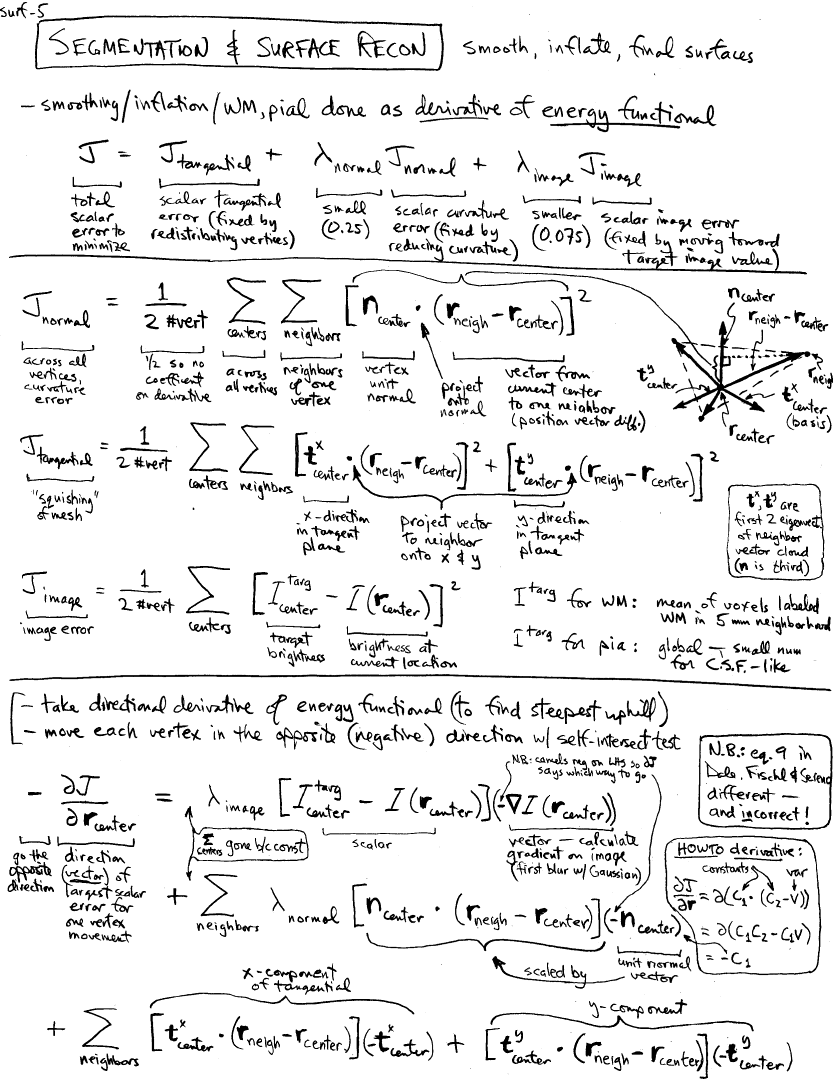 surf-5
SEGMENTATION & SURFACE RECON smooth, inflate, final surfaces
- smoothing/inflation/WM, pial done as derivative of energy functional
J = J_tangential + λ_normal J_normal + λ_image J_image
total scalar error to minimize
scalar tangential error (fixed by redistributing vertices)
small (0.25)
scalar curvature error (fixed by reducing curvature)
smaller (0.075)
scalar image error (fixed by moving toward target image value)
J_normal = 1/(2 #vert) Σ_centers Σ_neighbors [n_center · (r_neigh - r_center)]²
across all vertices, curvature error
1/2 so no coefficent on derivative
across all vertices
neighbors of one vertex
vertex unit normal
project onto normal
vector from current center to one neighbor (position vector diff.)
n_center
r_neigh - r_center
r_neigh
t^y_center
t^x_center (basis)
r_center
J_tangential = 1/(2 #vert) Σ_centers Σ_neighbors [t^x_center · (r_neigh - r_center)]² + [t^y_center · (r_neigh - r_center)]²
"squishing" of mesh
x-direction in tangent plane
project vector to neighbor onto x & y
y-direction in tangent plane
t^x, t^y are
first 2 eigenvect
of neighbor
vector cloud
(n is third)
J_image = 1/(2 #vert) Σ_centers [I^targ_center - I(r_center)]²
image error
target brightness
brightness at current location
I^targ for WM: mean of voxels labeled
WM in 5 mm neighborhood
I^targ for pia: global - small num
for C.S.F.-like
- take directional derivative of energy functional (to find steepest uphill)
- move each vertex in the opposite (negative) direction w/ self-intersect test
N.B.: cancels neg on LHS so ∂J
says which way to go
N.B.: eq. 9 in
Dale, Fischl & Sereno
different -
and incorrect!
- ∂J/∂r_center = λ_image [I^targ_center - I(r_center)](-∇I(r_center))
go the opposite direction
direction vector of largest scalar error for one vertex movement
Σ_centers gone b/c const
scalar
vector - calculate gradient on image (first blur w/ Gaussian)
+ Σ_neighbors λ_normal [n_center · (r_neigh - r_center)](-n_center)
scaled by
unit normal vector
HOWTO derivative:
constants var
∂J/∂r = ∂(C₁·(C₂-V))
= ∂(C₁C₂ - C₁V)
= -C₁
x-component of tangential
y-component
+ Σ_neighbors [t^x_center · (r_neigh - r_center)](-t^x_center) + [t^y_center · (r_neigh - r_center)](-t^y_center)